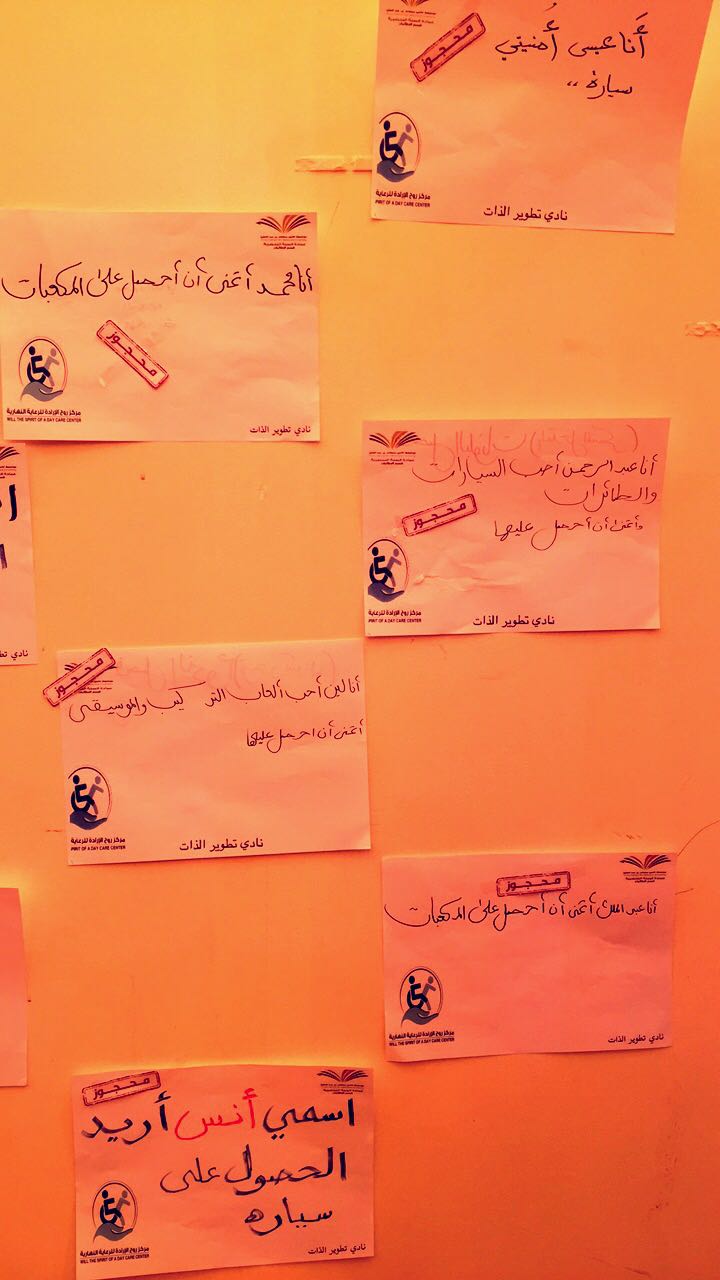 محجوز
أَنا عيسى أُمنيتي
سيارة ,,
مركز روح الإرادة للرعاية
PIRIT OF A DAY CARE CENTER
نادي تطوير الذات
أنا محمد أتمنى أن أحصل على المكعبات
محجوز
مركز روح الإرادة للرعاية النهارية
WILL THE SPIRIT OF A DAY CARE CENTER
نادي تطوير الذات
أنا عبد الرحمن أحب السيارات
والطائرات
محجوز
وأتمنى أن أحصل عليها
مركز روح الإرادة للرعاية
PIRIT OF A DAY CARE CENTER
نادي تطوير الذات
محجوز
أنا لين أحب ألعاب التركيب والموسيقى
أتمنى أن احصل عليها
مركز روح الإرادة للرعاية
PIRIT OF A DAY CARE CENTER
نادي تطوير الذات
محجوز
أنا عبد الملك أتمنى أن أحصل على المكعبات
مركز روح الإرادة للرعاية النهارية
WILL THE SPIRIT OF A DAY CARE CENTER
نادي تطوير الذات
محجوز
اسمي أنس أريد
الحصول على
سياره
مركز روح الإرادة للرعاية النهارية
WILL THE SPIRIT OF A DAY CARE CENTER
نادي تطوير الذات